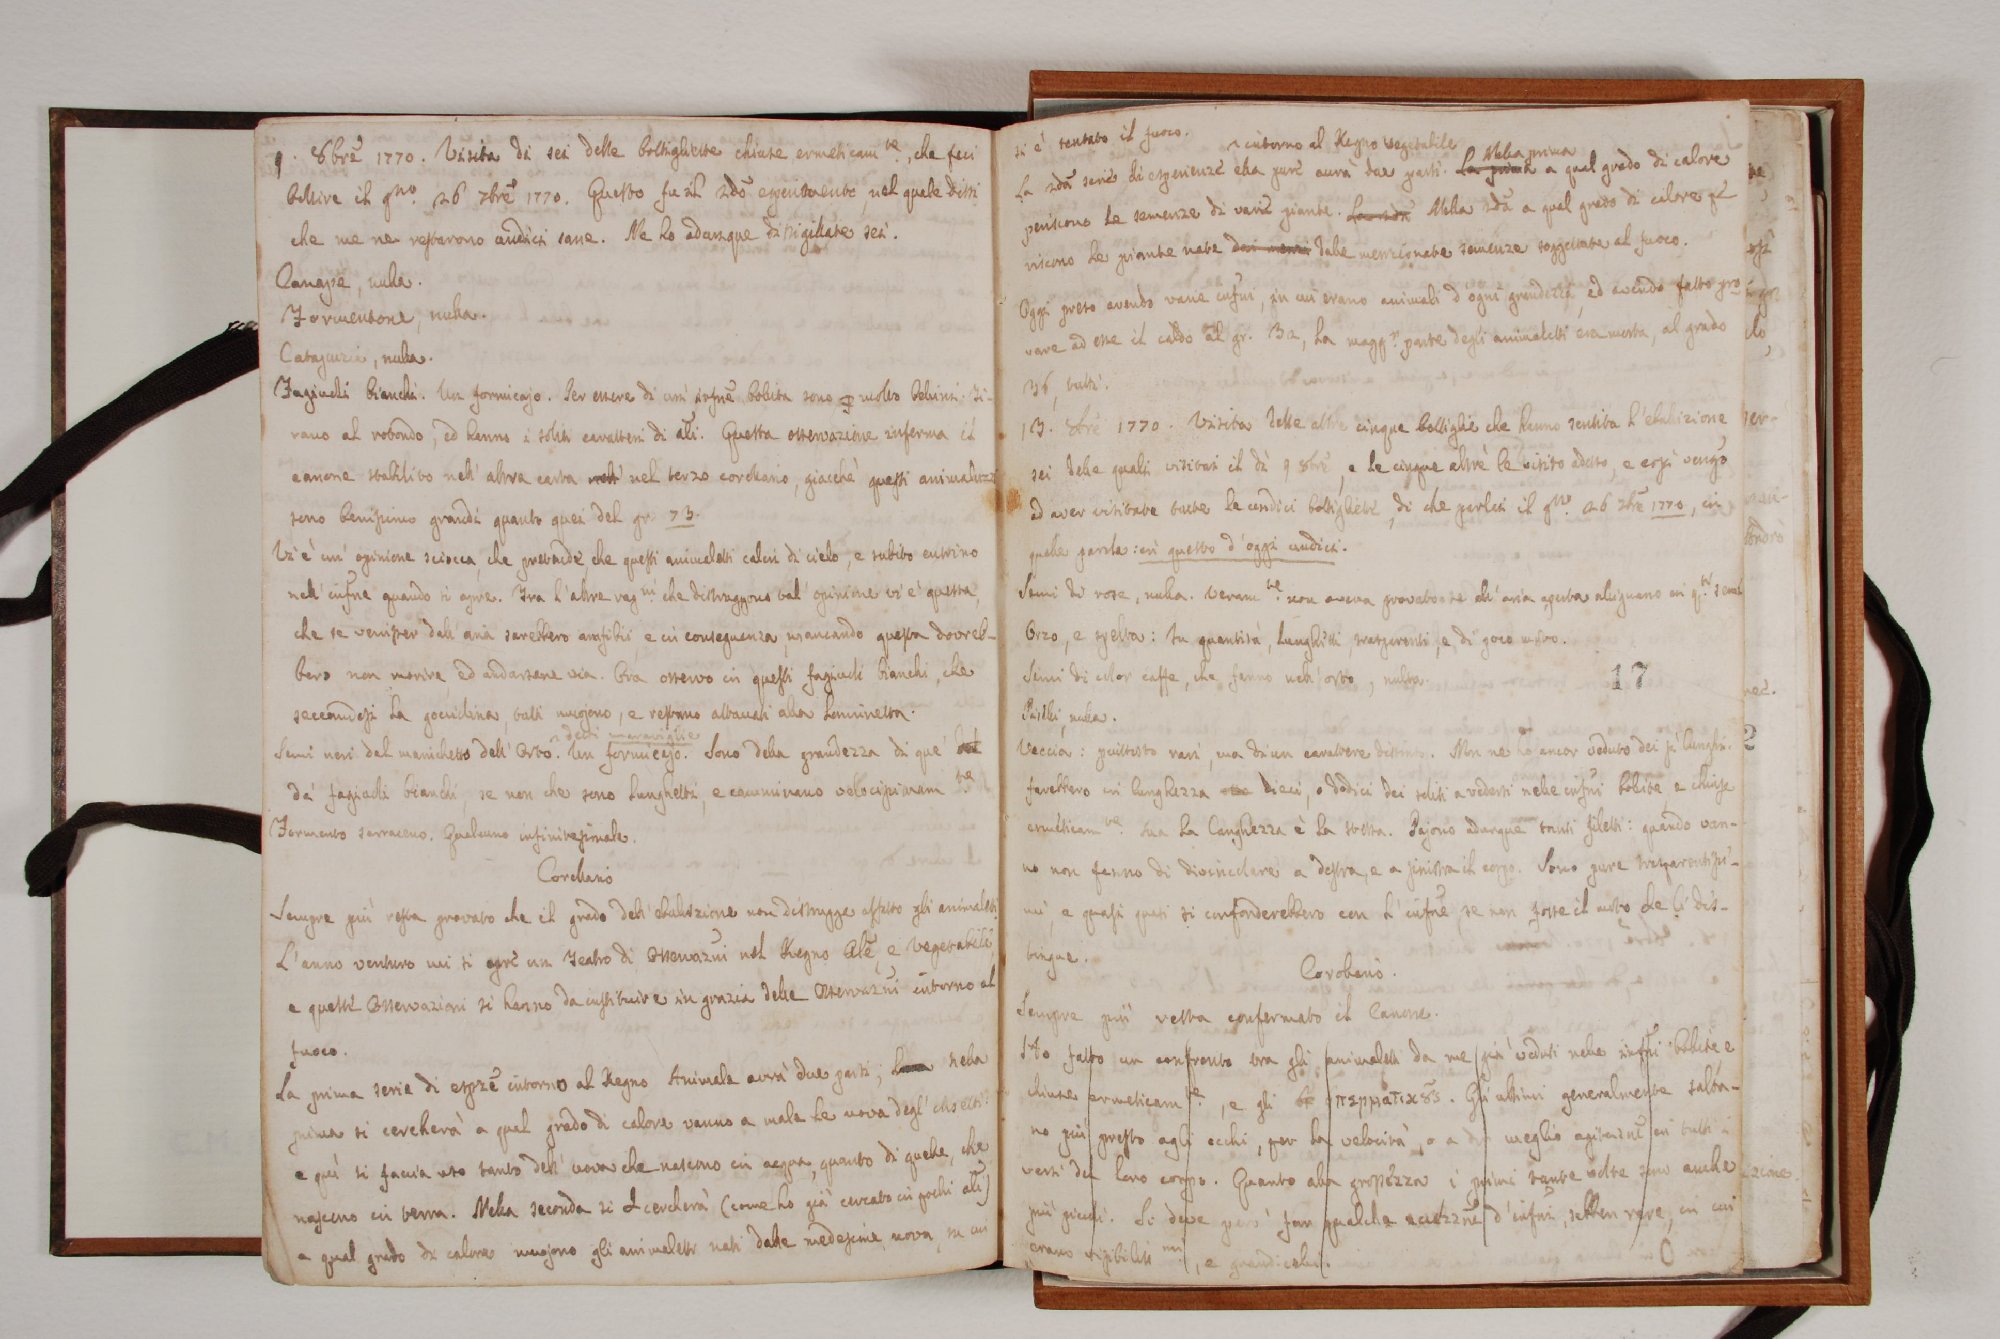 9. 8bre 1770. Visita di sei delle bottigliette chiuse ermeticamte, che feci
bollire il gno. 26 7bre 1770. Questo fu il 2do esperimento, nel quale dissi
che me ne restarono undici sane. Ne ho adunque disigillate sei.
Canape, nulla.
Formentone, nulla.
Catapuzia, nulla.
Fagiuoli bianchi. Un formicajo. Per essere di un' infne bollita sono molto bellini. Ti-
rano al rotondo, ed hanno i soliti caratteri di ali. Questa osservazione inferma il
canone stabilito nell' altra carta nel terzo corollario, giacchè questi animaluzzi
sono benissimo grandi quanto quei del gr. 73.
Vi è un' opinione sciocca, che pretende che questi animaletti calin di cielo, e subito entrino
nell' infne quando si apre. Fra l' altre ragni che distruggono tal' opinione vi è questa,
che se venisser dall' aria sarebbero anfibii, e in conseguenza, mancando questa dovreb-
bero non morire, ed andarsene via. Ora osservo in questi fagiuoli bianchi, che
seccandosi la gocciolina, tutti muojono, e restano attaccati alla laminetta.
detti maraviglie
Semi neri del manichetto dell' Orto. Un formicajo. Sono della grandezza di que'
da' fagiuoli bianchi, se non che sono lunghetti, e camminano velocissimamte
Formento sarraceno. Qualcuno infinitesimale.
Corollario
Sempre più resta provato che il grado dell' ebullizione non distrugga affatto gli animaletti.
L' anno venturo mi si apre un Teatro di Osservazni nel Regno Ale, e Vegetabile,
e queste Osservazioni si hanno da instituire in grazia delle Osservazni intorno al
fuoco.
La prima serie di espze intorno al Regno Animale avrà due parti; nella
prima si cercherà a qual grado di calore vanno a male le uova degl' insetti:
e qui si faccia uso tanto dell' uova che nascono in acqua, quanto di quelle, che
nascono in terra. Nella seconda si cercherà (come ho già cercato in pochi ali)
a qual grado di calore muojono gli animaletti nati dalle medesime uova, su cui
si è tentato il fuoco.
intorno al Regno vegetabile
Nella prima
La 2da serie di esperienze ella pure avrà due parti. La prima a qual grado di calore
periscono le semenze di varie piante. La 2da Nella 2da a qual grado di calore pe
riscono le piante nate dalle menzionate semenze soggettate al fuoco.
Oggi preso avendo varie infni, in cui erano animali d' ogni grandezza, ed avendo fatto pro
vare ad esse il caldo al gr. 32, la maggr. parte degli animaletti era morta, al grado
36, tutti.
13. 8bre 1770. Visita delle altre cinque bottiglie che hanno sentita l' ebulizione
sei delle quali visitai il dì 9 8bre, e le cinque altre le visito adesso, e così vengo
ad aver visitate tutte le undici bottigliette, di che parlai il gno. 26 7bre 1770, in
quelle parole: in questo d' oggi undici.
Semi di rose, nulla. Veramte. non aveva provato se all' aria aperta alignano in qti semi
Orzo, e spelta: In quantità, lunghetti, trasparenti, e di poco moto.
Semi di color caffe, che fanno nell' orto, nulla.
17
Piselli, nulla.
Veccia: piuttosto rari, ma di un carattere distinto. Non ne ho ancor veduto dei sì lunghi.
farebbero in lunghezza dieci, o dodici dei soliti a vedersi nelle infni bollite, e chiuse
ermeticamte. ma la larghezza è la stessa. Pajono adunque tanti filetti: quando van-
no non fanno di divincolare a destra, e a sinistra il corpo. Sono pure trasparentissi-
mi, e quasi quasi si confonderebbero con l' infne, se non fosse il moto che li dis-
tingue.
Corollario.
Sempre più resta confermato il Canone.
Ho fatto un confronto tra gli animaletti da me più veduti nelle infni bollite e
chiuse ermeticamte, e gli σπερματικοὺς. Gli ultimi generalmente salta-
no più presto agli occhi, per la velocità, o a dir meglio agitazne in tutti i
versi del loro corpo. Quanto alla grossezza i primi tante volte sono anche
più piccoli. Si deve però far qualche eccezzne d' infni, sebben rare, in cui
erano visibilissmi, e grandicelli.